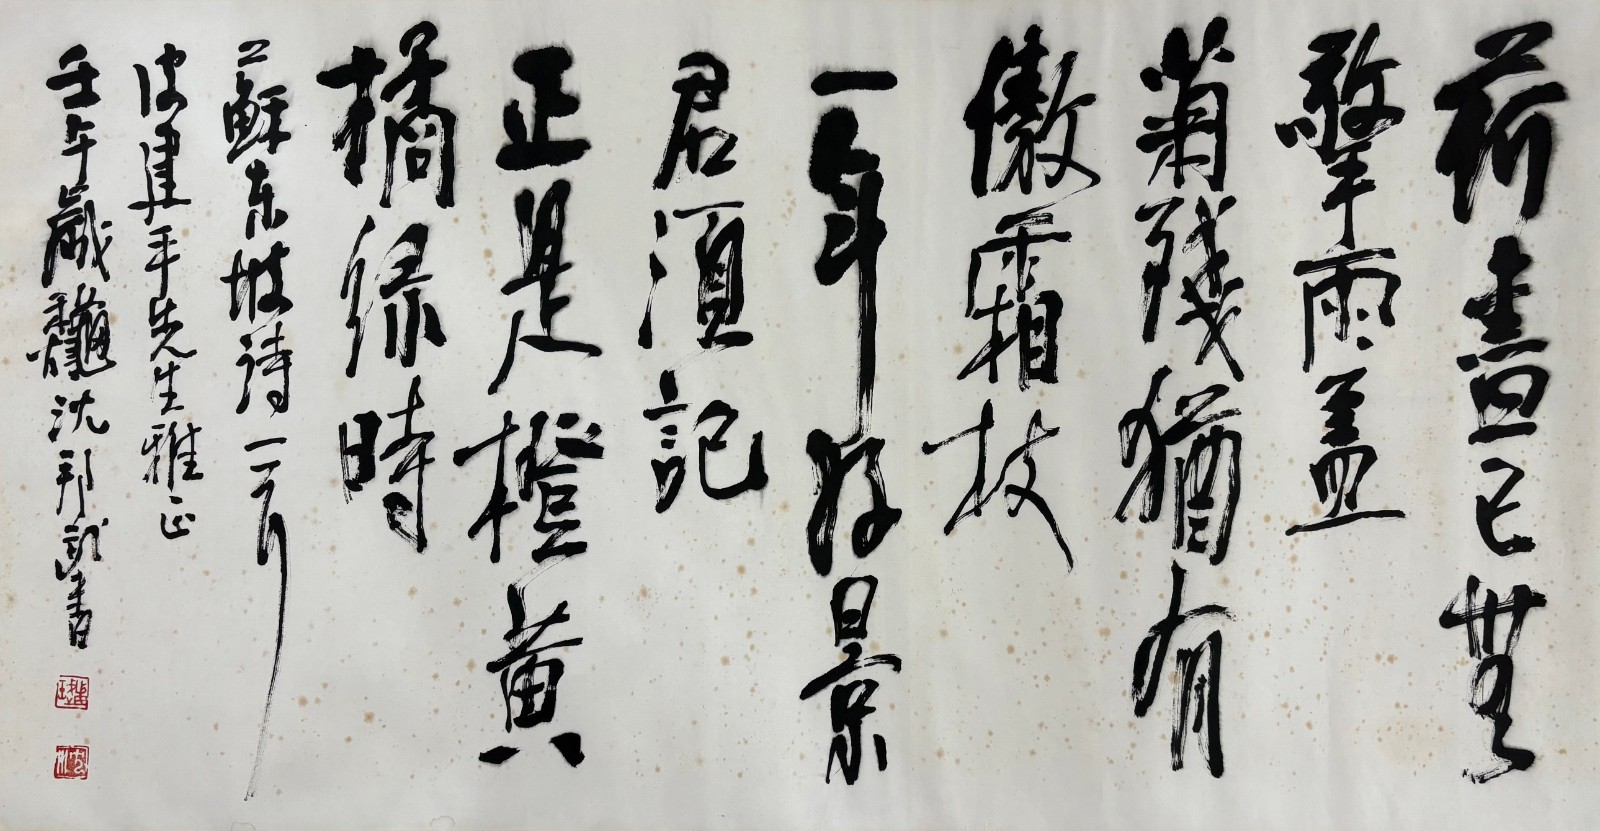 荷盡已無
擎雨蓋
菊殘猶有
傲霜枝
一年好景
君須記
正是橙黃
橘綠時
蘇東坡詩一首
建平先生雅正
壬午歲龝沈邦書